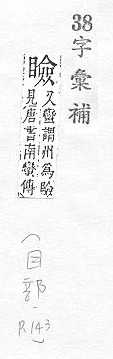 38 字彙補
瞼 又蠻謂州為瞼
見唐書南蠻傳
(目部 - P.143)